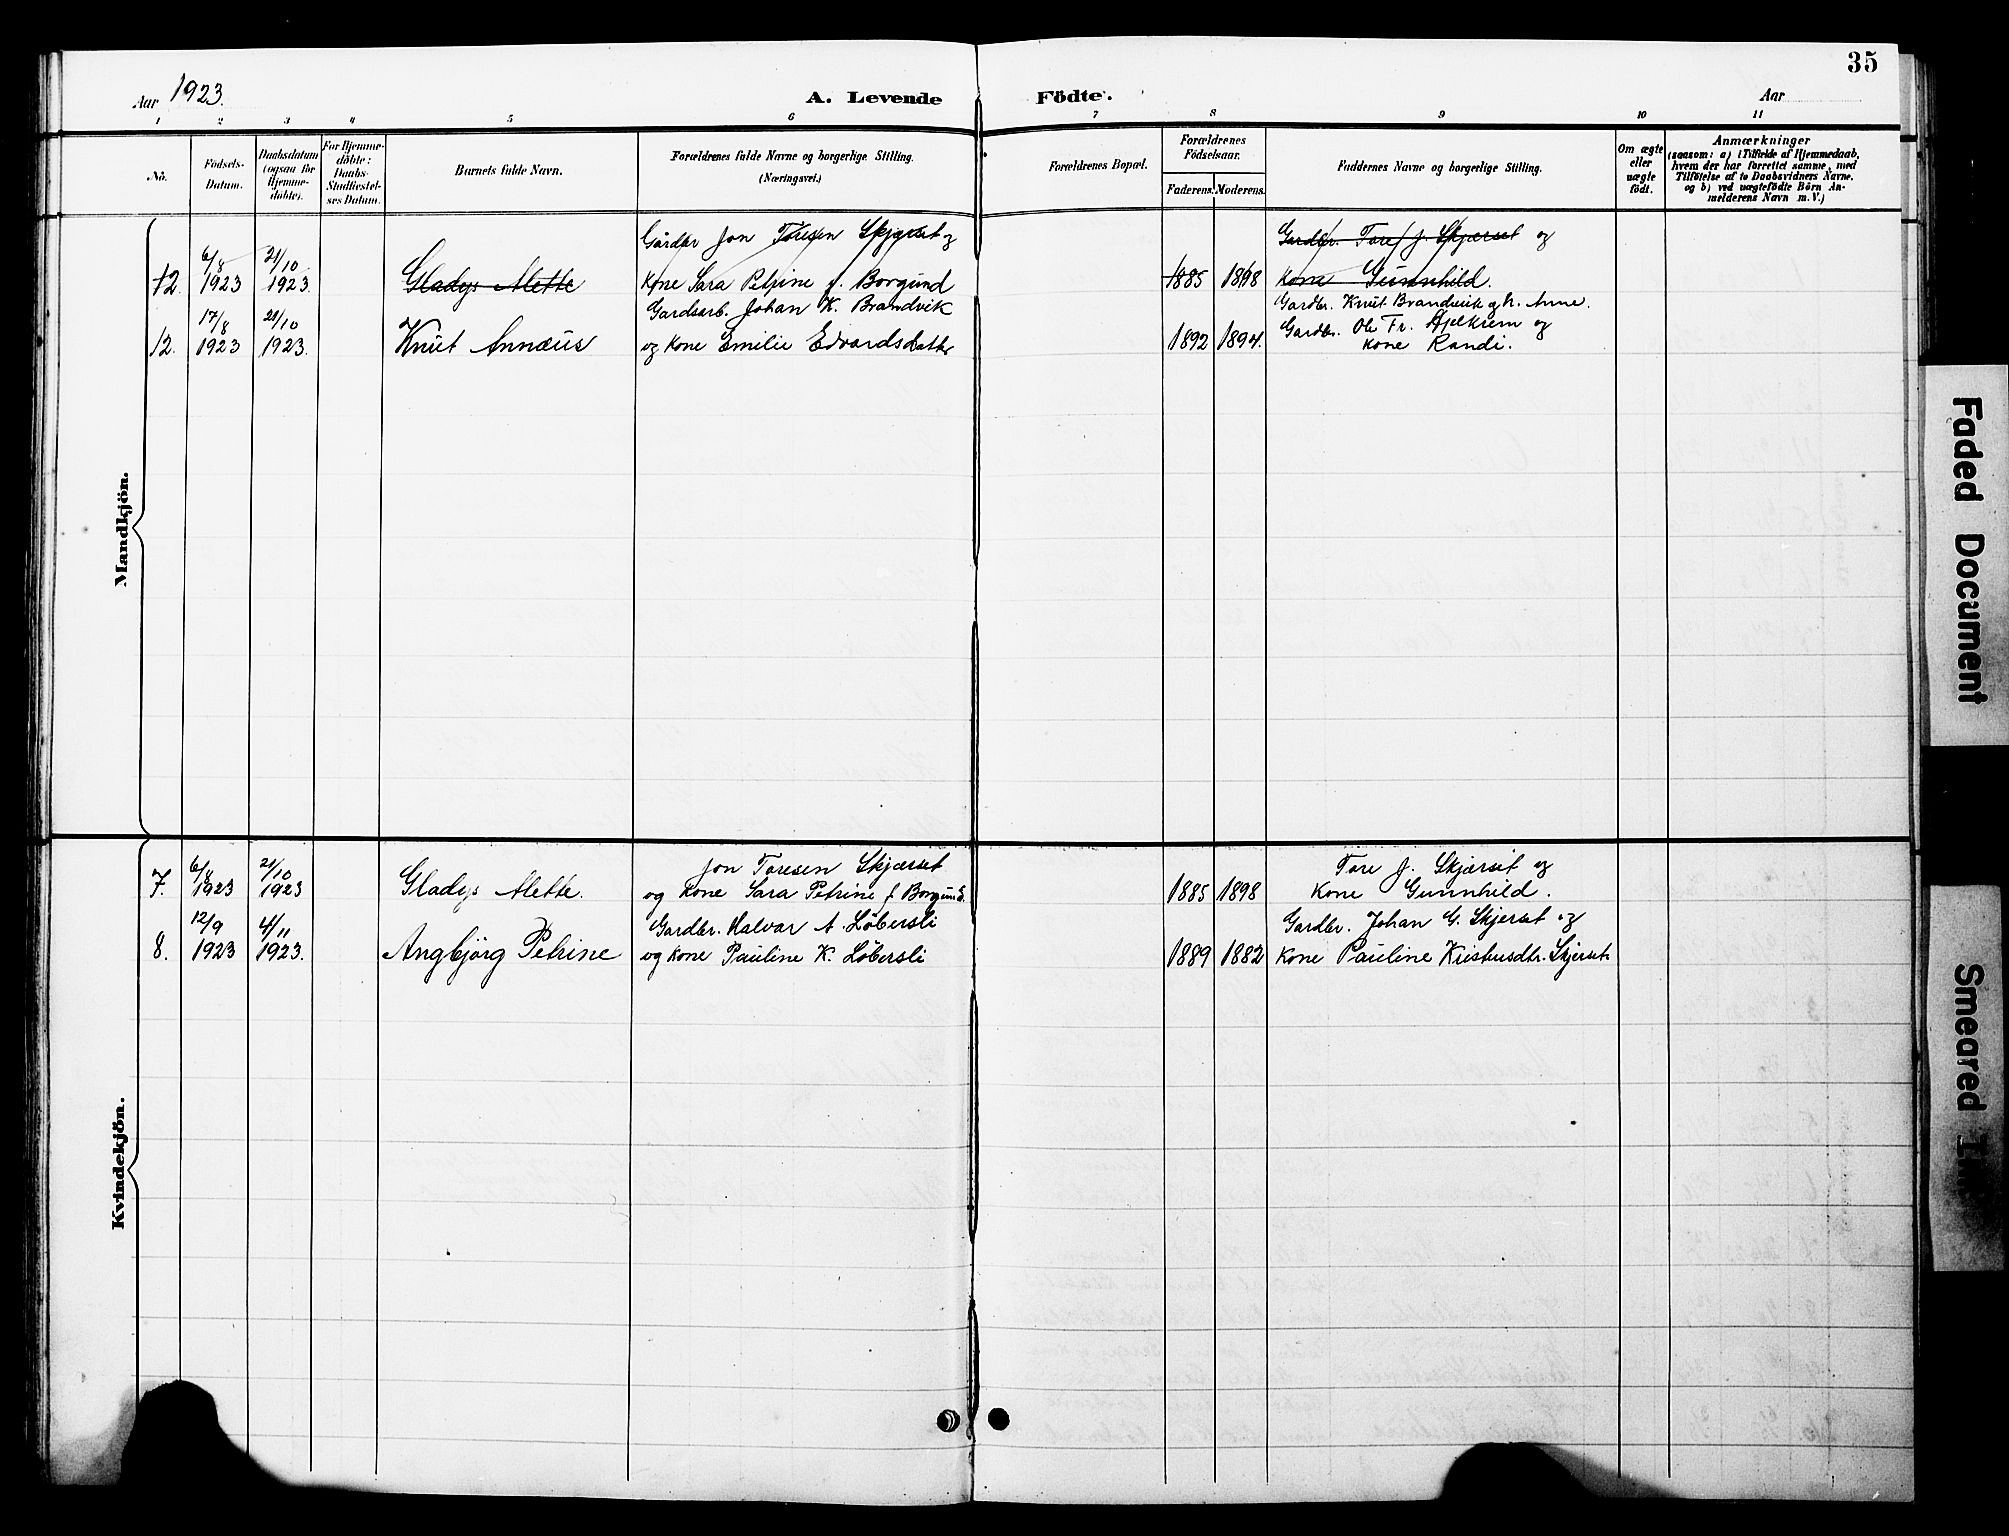 35
Aar 1923.
A. Levende Födte.
Aar
1 2 3 4 5 6 7 8 9 10 11
No.
Födsels-
Datum.
Daabsdatum
(ogsaa for
Hjemme-
döbte).
For Hjemme-
döbte:
Daabs-
Stadfæstel-
ses Datum.
Barnets fulde Navn.
Forældrenes fulde Navne og borgerlige Stilling.
(Næringsvei.)
Forældrenes Bopæl.
Forældrenes
Födselsaar.
Faderens. Moderens.
Faddernes Navne og borgerlige Stilling.
Om ægte
eller
uægte
födt.
Anmærkninger
(saasom: a) i Tilfælde af Hjemmedaab,
hvem der har forrettet samme, med
Tilføielse af to Daabsvidners Navne.
og b) ved uægtefödte Börn An-
melderens Navn m. V.)
Mandkjön.
Gårdbr Jon Toresen Skjærset og
Gardbr. Tore J. Skjærset og
6/8 21/10
12 1923 1923. Gladys Alette Kone Sara Petrine f. Borgund 1885 1898 Kone Gunnhild.
Gardsarb. Johan K. Brandvik
Gardbr. Knut Brandvik og h. Anne.
17/8 21/10
Gardbr. Ole Fr. Hjelkrem og
12. 1923 1923. Knut Annæus og Kone Emilie Edvardsdatter 1892 1894. Kone Randi.
Kvindekjön.
6/8 21/10 Jon Toresen Skjærset Tore J. Skjærset og
7. 1923 1923 Gladys Alette. og Kone Sara Petrine f Borgund. 1885 1898 Kone Gunnhild.
12/9 4/11 Gardbr. Halvar A. Løbersli Gardbr. Johan G. Skjerset og
8. 1923 1923. Angbjörg Petrine og Kone Pauline K. Løbersli 1889 1882 Kone Pauline Kristensdtr. Skjerset.
Faded Document
Smeared